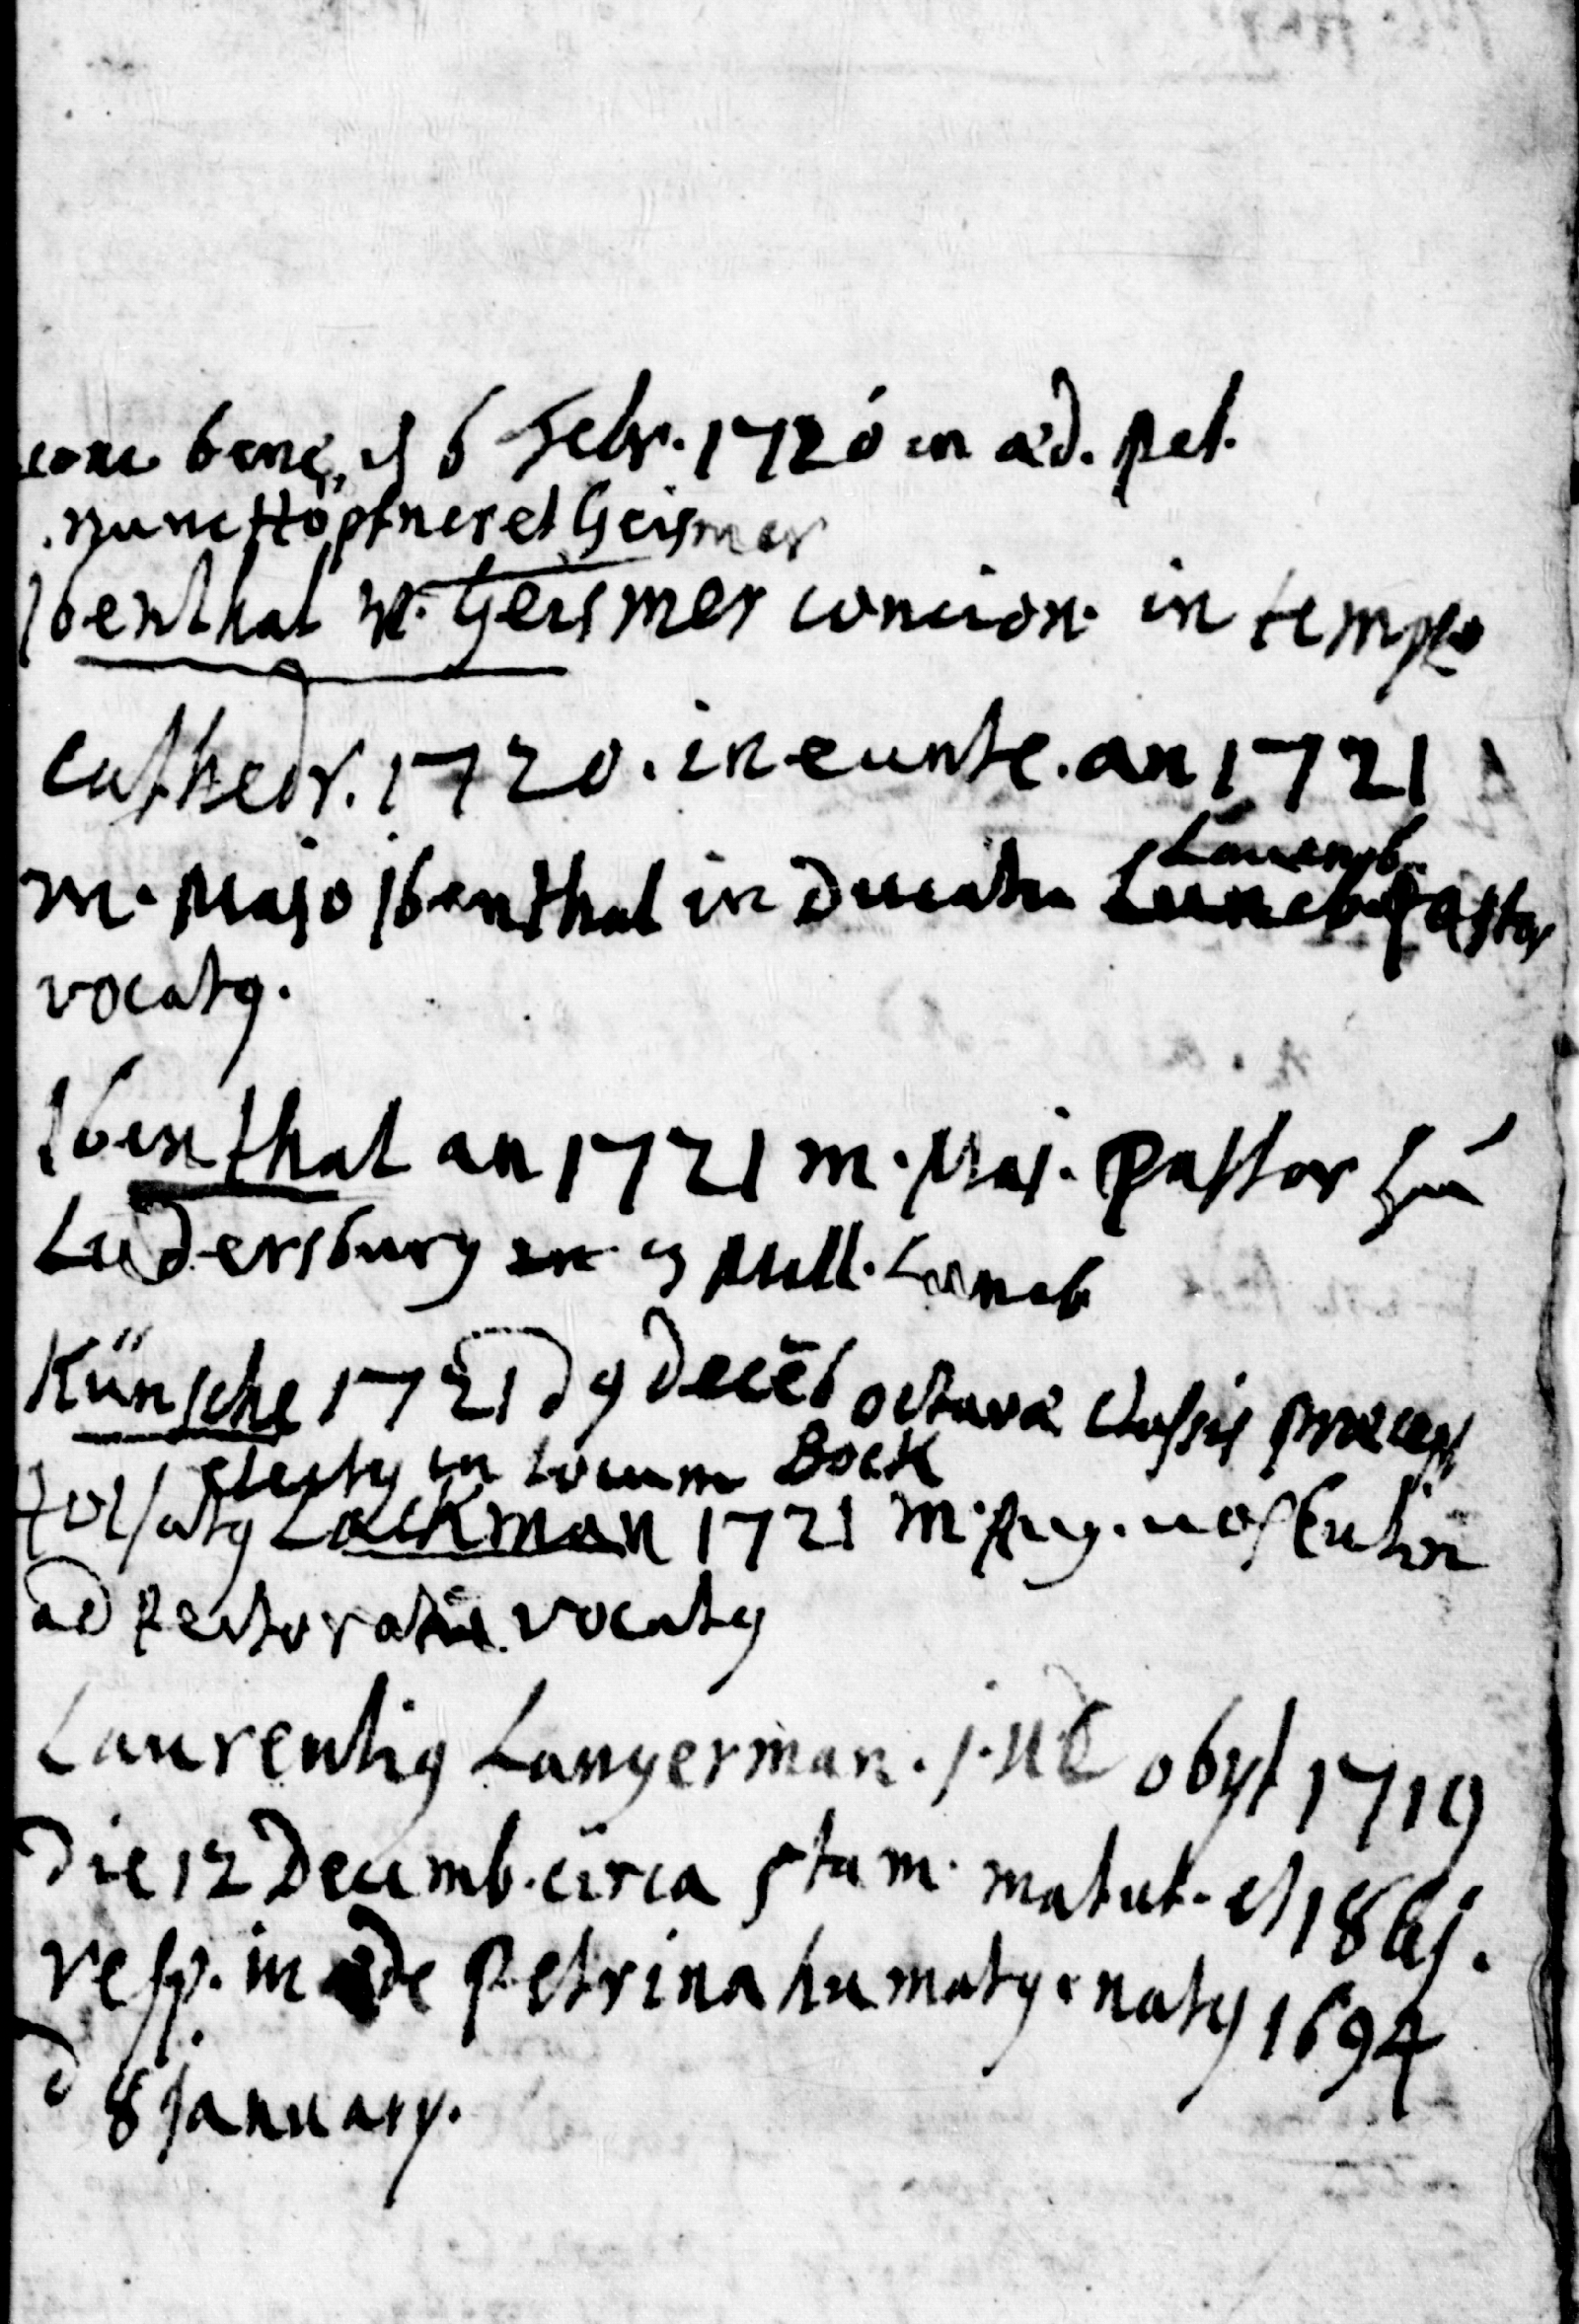 conc bene, d 6 Febr. 1720 in æd. Pet.
nunc Höpfner et Geismer
Ibenthal n. Geismer concion. in templo
Cathedr. 1720. ineunte. an 1721
m. Majo Ibenthal in ducatu Lauenb. Luneb. Pastor
vocatg.
Ibenthal an 1721 m. Maj. Pastor zu
Ludersburg Luneb
Künsche 1721 d 9 Decēb octavæ classis præcept
electg in locum Bock
Lackman 1721 m. Aug.
ad Rectoratū vocatg
Laurentig Langerman. J.U.C obyt 1719
die 12 Decemb. circa 5tam. matut. et 18 ej.
vesp. in æde Petrina humatg. natg 1694
d 8 January.